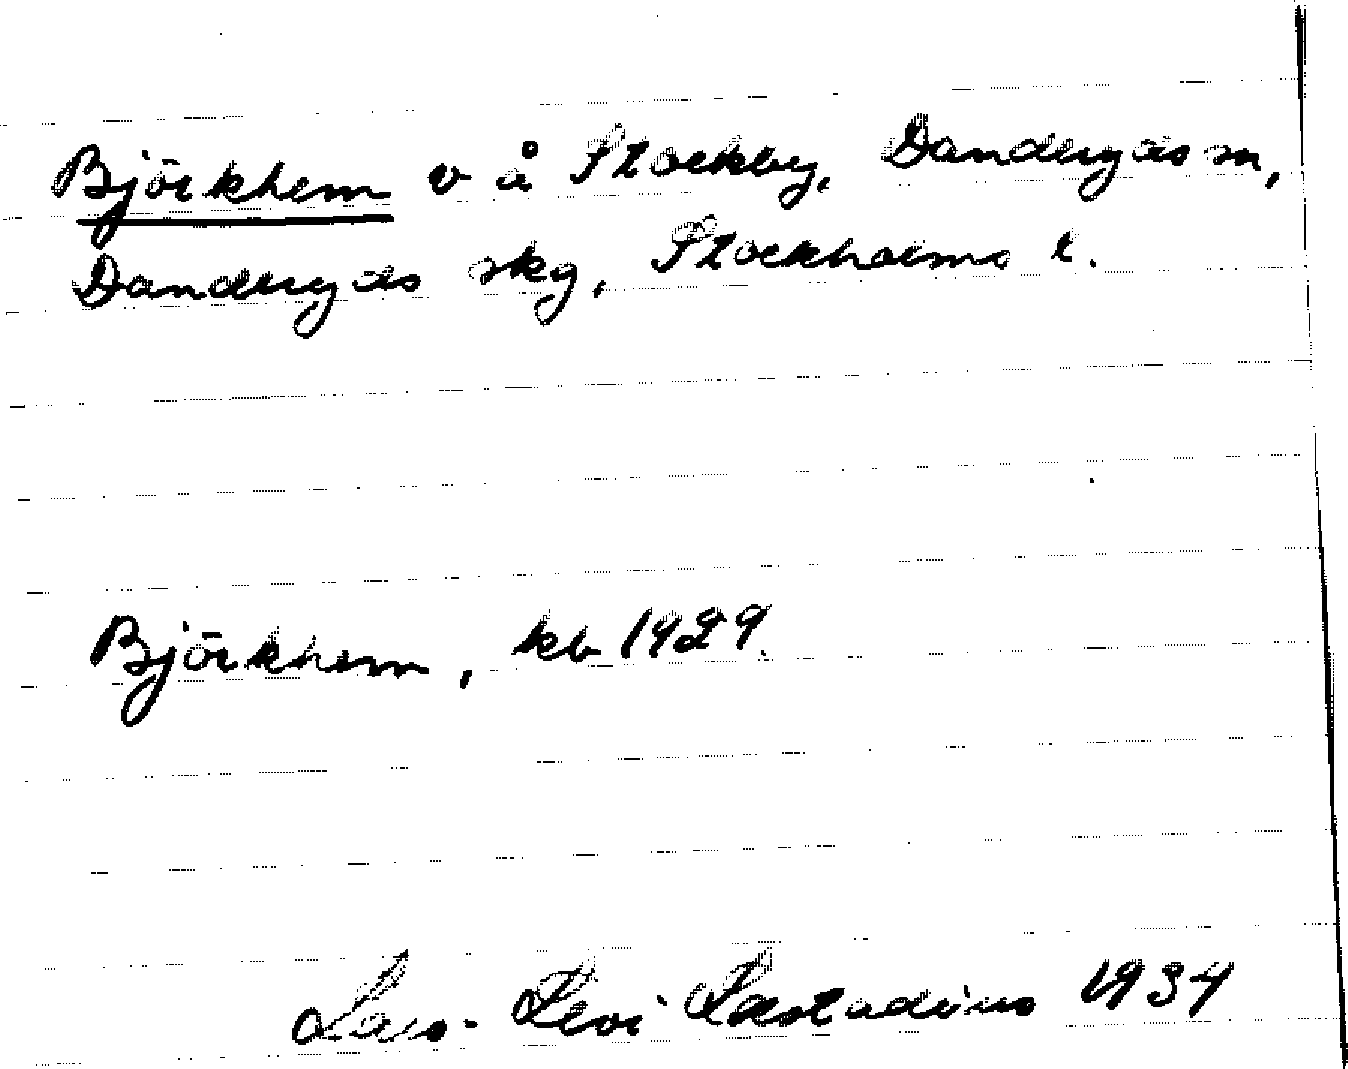 Björkhem v å Stockby, Danderyds sn,
Danderyds skg, Stockholms l.
Björkhem, kb 1929.
Lars-Levi Læstadius 1934